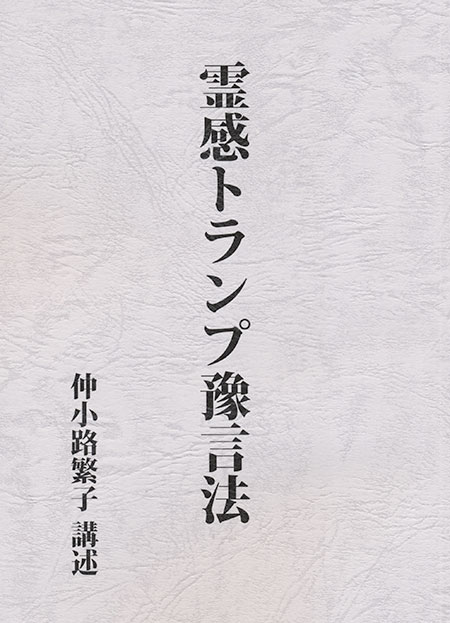 霊感トランプ豫言法
仲小路繁子 講述